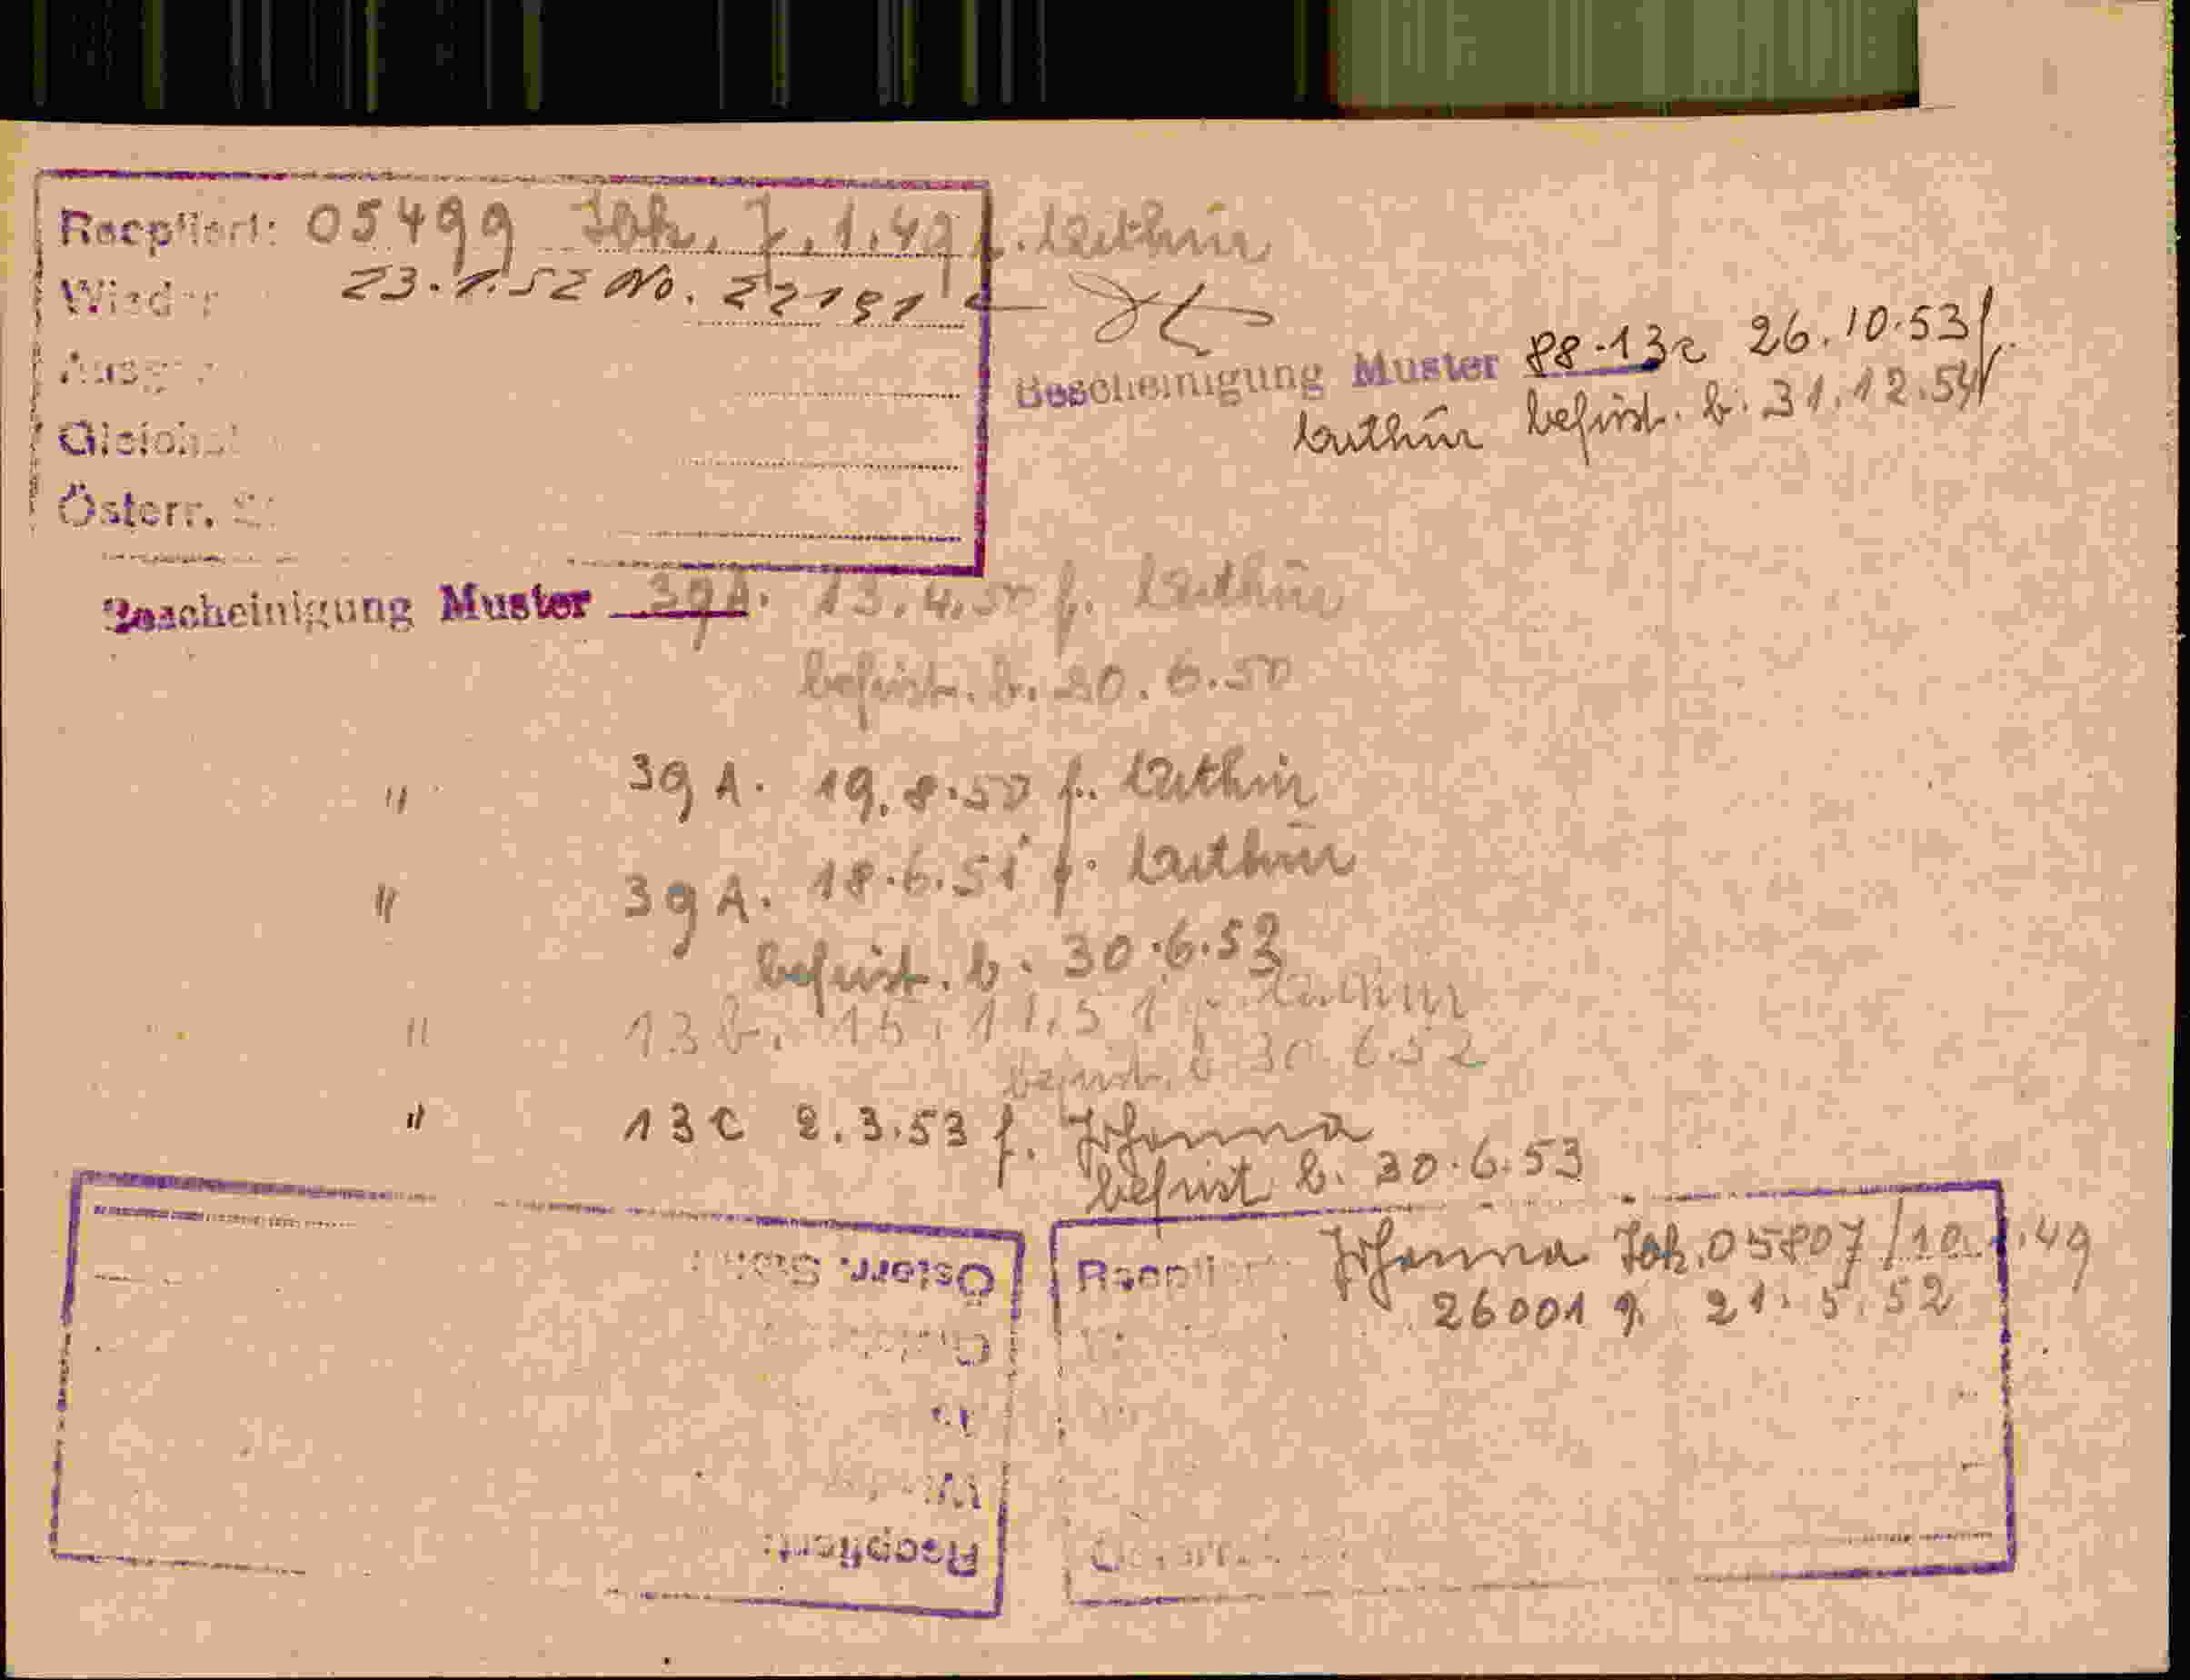 Raepliert: 05499 Jak. 7.1.49 f. Luthün
Wieder 23.1.52 No. 22191
Ausg
Gleichst
Österr. St
Bescheinigung Muster 88-13c 26.10.53 f.
Luthün befrist. b. 31.12.54
Bescheinigung Muster 39A. 13.4.50 f. Luthün
befrist. b. 30.6.50
" 39A. 19.8.50 f. Luthün
" 39A. 18.6.51 f. Luthün
befrist. b. 30.6.53
" 13b. 15.11.51 f. Luthün
befrist. b. 30.6.52
" 13c 2.3.53 f. Johanna
befrist b. 30.6.53
Johanna Jak. 05807/10.1.49
26001 g. 21.5.52
Österr. Staat
Raepliert: